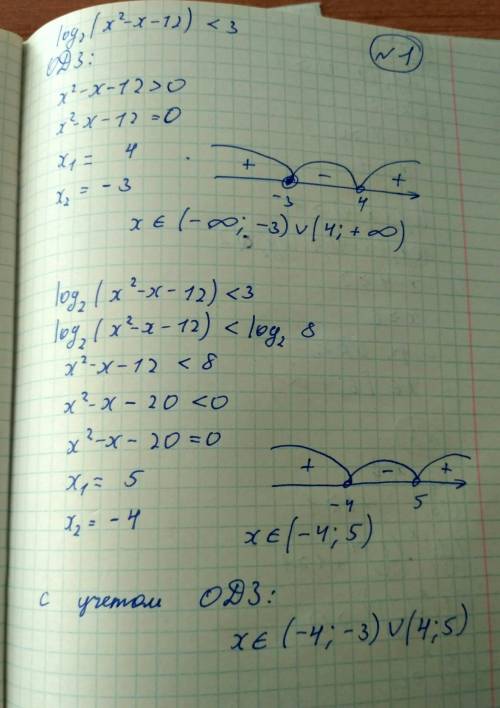 log₂(x²-x-12) < 3
№1
ОДЗ:
x²-x-12>0
x²-x-12=0
x₁ = 4
x₂ = -3
+ - +
-3 4
x ∈ (-∞; -3) ∪ (4; +∞)
log₂(x²-x-12)<3
log₂(x²-x-12) < log₂ 8
x²-x-12 < 8
x²-x-20 <0
x²-x-20=0
x₁ = 5
x₂ = -4
+ - +
-4 5
x∈(-4; 5)
с учетом ОДЗ:
x∈ (-4; -3) ∪ (4; 5)